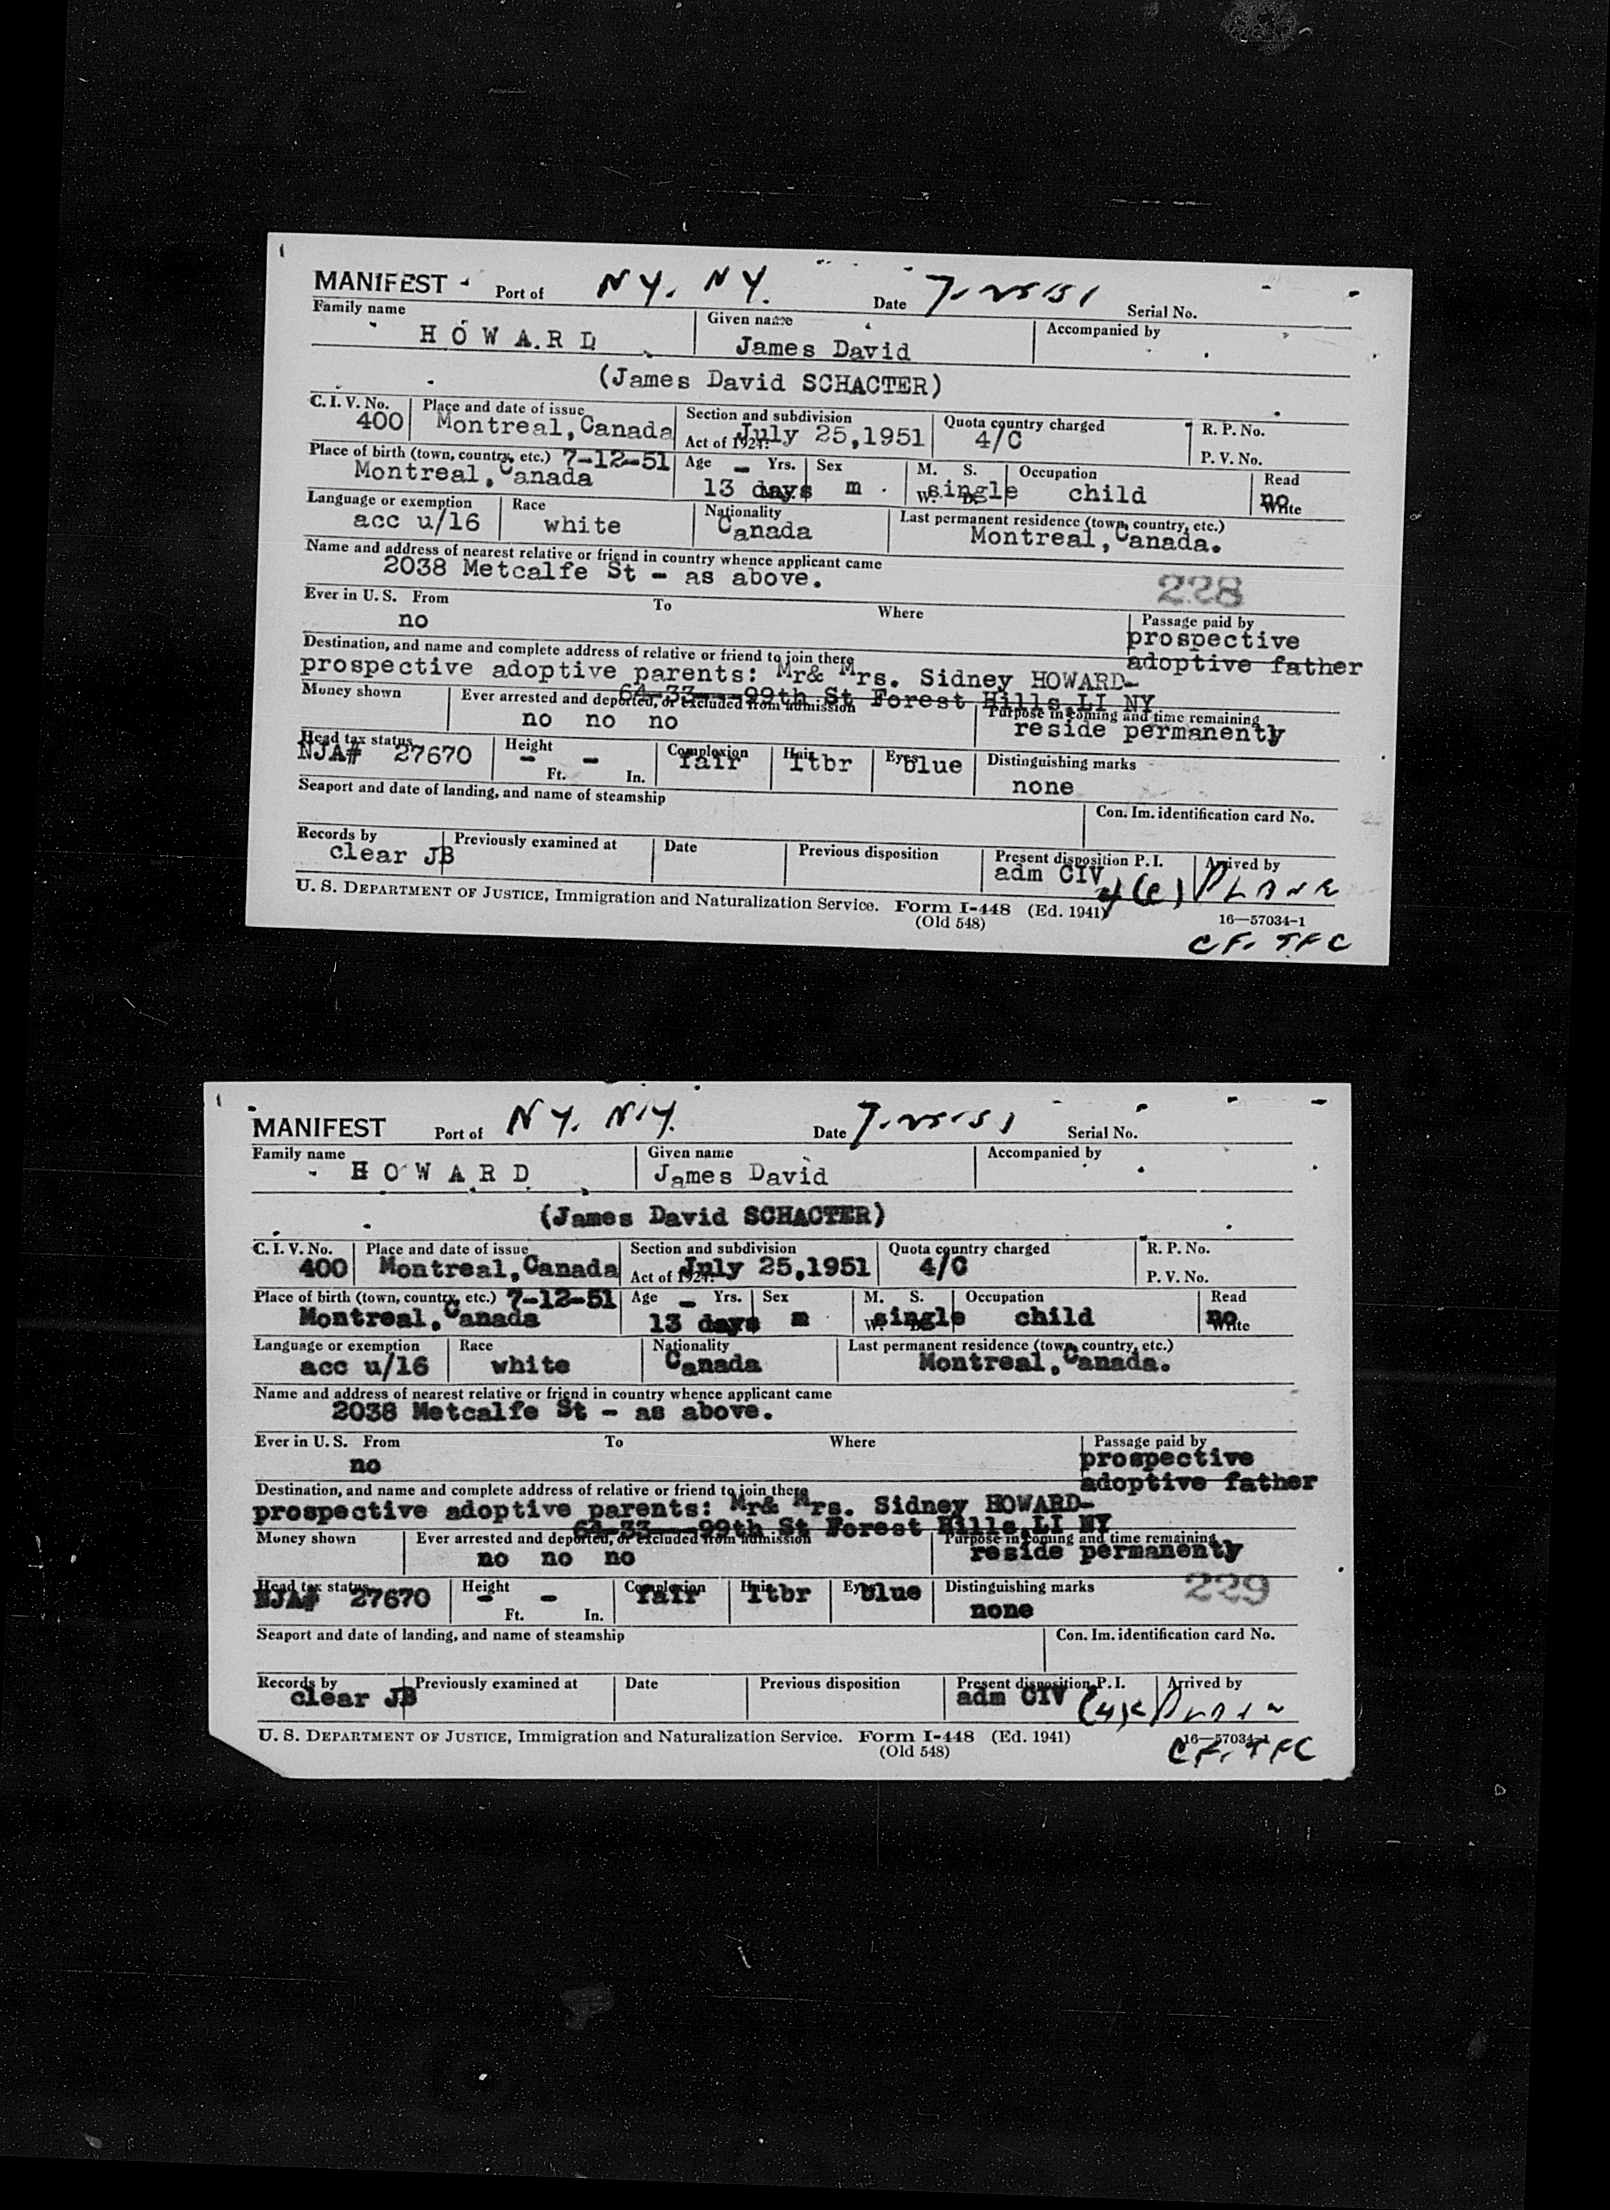 MANIFEST Port of NY. NY. Date 7-25-51 Serial No.
Family name Given name Accompanied by
HOWARD James David
(James David SCHACTER)
C. I. V. No. Place and date of issue Section and subdivision Quota country charged R. P. No.
400 Montreal, Canada Act of 1924: July 25,1951 4/C P. V. No.
Place of birth (town, country, etc.) 7-12-51 Age - Yrs. Sex M. S. Occupation Read
Montreal, Canada 13 days m. W. D. single child no Write
Language or exemption Race Nationality Last permanent residence (town, country, etc.)
acc u/16 white Canada Montreal, Canada.
Name and address of nearest relative or friend in country whence applicant came
2038 Metcalfe St - as above. 228
Ever in U. S. From To Where Passage paid by
no prospective
Destination, and name and complete address of relative or friend to join there adoptive father
prospective adoptive parents: Mr& Mrs. Sidney HOWARD-
64-33---99th St Forest Hills,LI NY
Money shown Ever arrested and deported, or excluded from admission Purpose in coming and time remaining
no no no reside permanently
Head tax status Height Complexion Hair Eyes Distinguishing marks
NJA# 27670 - Ft. - In. fair ltbr blue none
Seaport and date of landing, and name of steamship Con. Im. identification card No.
Records by Previously examined at Date Previous disposition Present disposition P. I. Arrived by
clear JB adm CIV 4(c) PLANE
U. S. DEPARTMENT OF JUSTICE, Immigration and Naturalization Service. Form I-448 (Ed. 1941) 16—57034-1
(Old 548)
CF. TFC
MANIFEST Port of NY. NY. Date 7-25-51 Serial No.
Family name Given name Accompanied by
HOWARD James David
(James David SCHACTER)
C. I. V. No. Place and date of issue Section and subdivision Quota country charged R. P. No.
400 Montreal, Canada Act of 1924: July 25,1951 4/C P. V. No.
Place of birth (town, country, etc.) 7-12-51 Age - Yrs. Sex M. S. Occupation Read
Montreal, Canada 13 days m W. D. single child no Write
Language or exemption Race Nationality Last permanent residence (town, country, etc.)
acc u/16 white Canada Montreal, Canada.
Name and address of nearest relative or friend in country whence applicant came
2038 Metcalfe St - as above.
Ever in U. S. From To Where Passage paid by
no prospective
Destination, and name and complete address of relative or friend to join there adoptive father
prospective adoptive parents: Mr& Mrs. Sidney HOWARD-
64-33---99th St Forest Hills,LI NY
Money shown Ever arrested and deported, or excluded from admission Purpose in coming and time remaining
no no no reside permanently
Head tax status Height Complexion Hair Eyes Distinguishing marks 229
NJA# 27670 - Ft. - In. fair ltbr blue none
Seaport and date of landing, and name of steamship Con. Im. identification card No.
Records by Previously examined at Date Previous disposition Present disposition P. I. Arrived by
clear JB adm CIV
U. S. DEPARTMENT OF JUSTICE, Immigration and Naturalization Service. Form I-448 (Ed. 1941) 16—57034-1
(Old 548)
CF. TFC